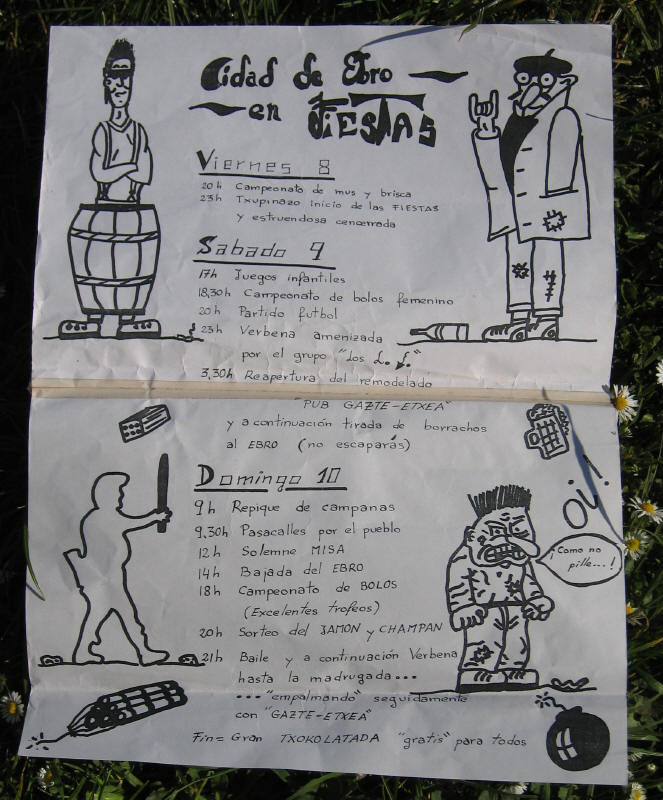 Cidad de Ebro
en FiESTAS
Viernes 8
20 h Campeonato de mus y brisca
23 h Txupinazo inicio de las FIESTAS
y estruendosa cencerrada
Sabado 9
17h Juegos infantiles
18,30h Campeonato de bolos femenino
20h Partido futbol
23h Verbena amenizada
por el grupo "Los L. L."
3,30h Reapertura del remodelado
"PUB GAZTE-ETXEA"
y a continuación tirada de borrachos
al EBRO (no escaparás)
Domingo 10
9h Repique de campanas
9,30h Pasacalles por el pueblo
12h Solemne MISA
14h Bajada del EBRO
18h Campeonato de BOLOS
(Excelentes trofeos)
20h Sorteo del JAMON y CHAMPAN
21h Baile y a continuación Verbena
hasta la madrugada...
..."empalmando" seguidamente
con "GAZTE-ETXEA"
Fin= Gran TXOKOLATADA "gratis" para todos
Oi!
¡Como no
pille...!